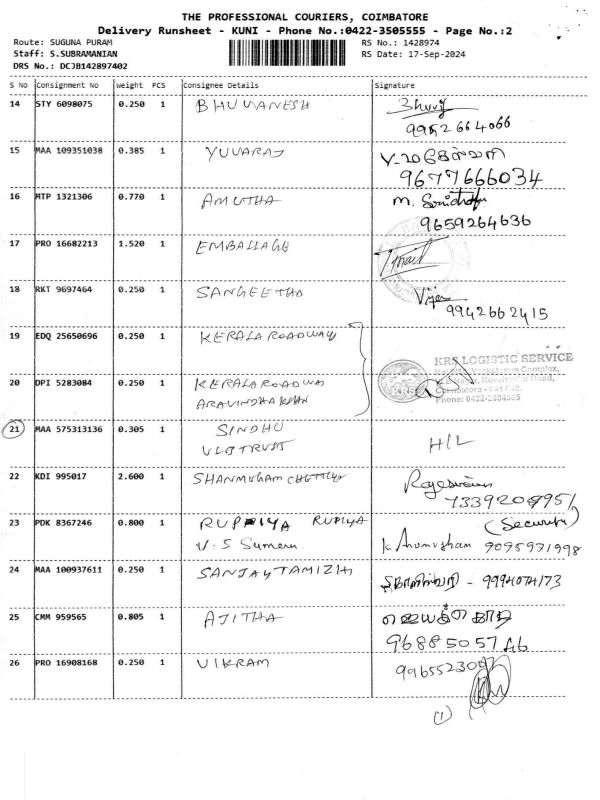 THE PROFESSIONAL COURIERS, COIMBATORE
Delivery Runsheet - KUNI - Phone No.:0422-3505555 - Page No.:2
Route: SUGUNA PURAM RS No.: 1428974
Staff: S.SUBRAMANIAN RS Date: 17-Sep-2024
DRS No.: DCJB142897402
S No Consignment No Weight PCS Consignee Details Signature
14 STY 6098075 0.250 1 BHUVANESH
9952664066
15 MAA 109351038 0.385 1 YUVARAJ
9677666034
16 MTP 1321306 0.770 1 AMUTHA M.
9659264636
17 PRO 16682213 1.520 1 EMBALLAGE
18 RKT 9697464 0.250 1 SANGEETHA Vijay
9942662415
19 EDQ 25650696 0.250 1 KERALA ROADWAY
KRS LOGISTIC SERVICE
Complex,
20 DPI 5283084 0.250 1 KERALA ROADWAY
Coimbatore - 641 042.
ARAVINDHAKSHAN
Phone: 0422-2604505
21 MAA 575313136 0.305 1 SINDHU
VLB TRUST H/L
22 KDI 995017 2.600 1 SHANMUGAM CHETTIYAR Rajeswari
23 PDK 8367246 0.800 1 RUPPIYA RUPIYA (Security)
V.S Sumeru K. Arumugham 9095971998
24 MAA 100937611 0.250 1 SANJAY TAMIZH - 9994074173
25 CMM 959565 0.805 1 AJITHA
9688505746
26 PRO 16908168 0.250 1 VIKRAM
(1)